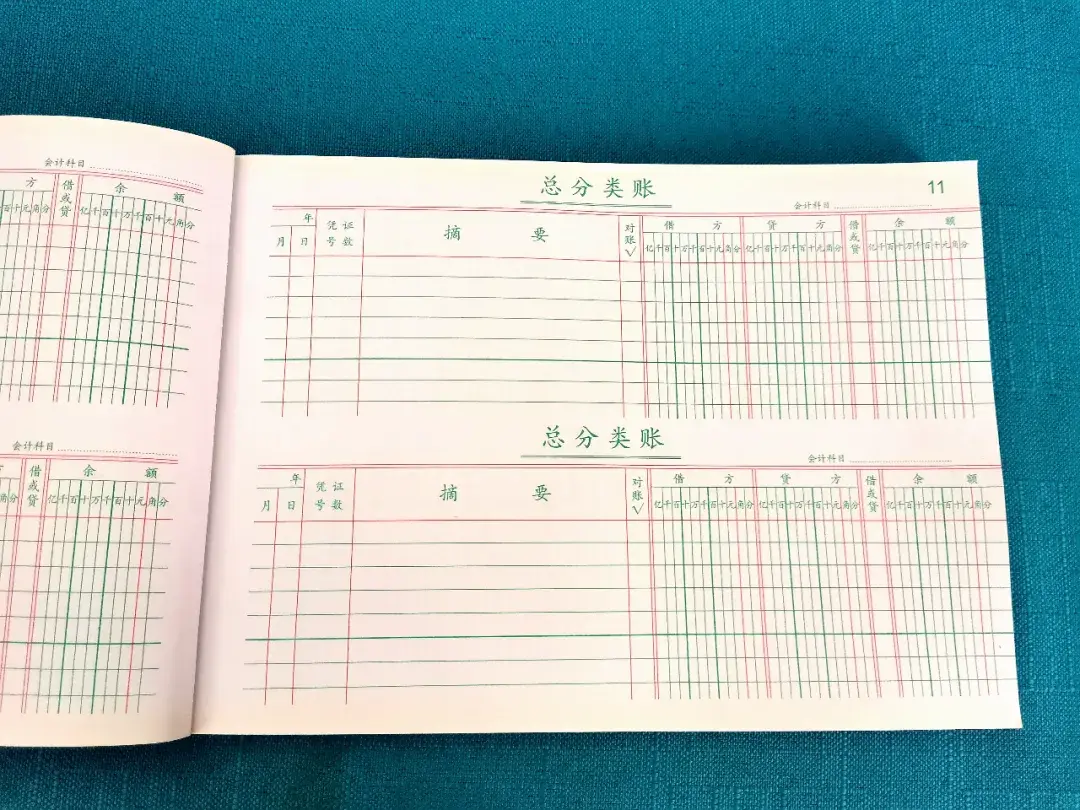 会计科目
方 借或贷 余 额
百十元角分 亿千百十万千百十元角分
会计科目
方 借或贷 余 额
角分 亿千百十万千百十元角分
总分类账 11
会计科目
年 凭证号数 摘要 对账√ 借方 贷方 借或贷 余额
月 日 亿千百十万千百十元角分 亿千百十万千百十元角分 亿千百十万千百十元角分
总分类账
会计科目
年 凭证号数 摘要 对账√ 借方 贷方 借或贷 余额
月 日 亿千百十万千百十元角分 亿千百十万千百十元角分 亿千百十万千百十元角分